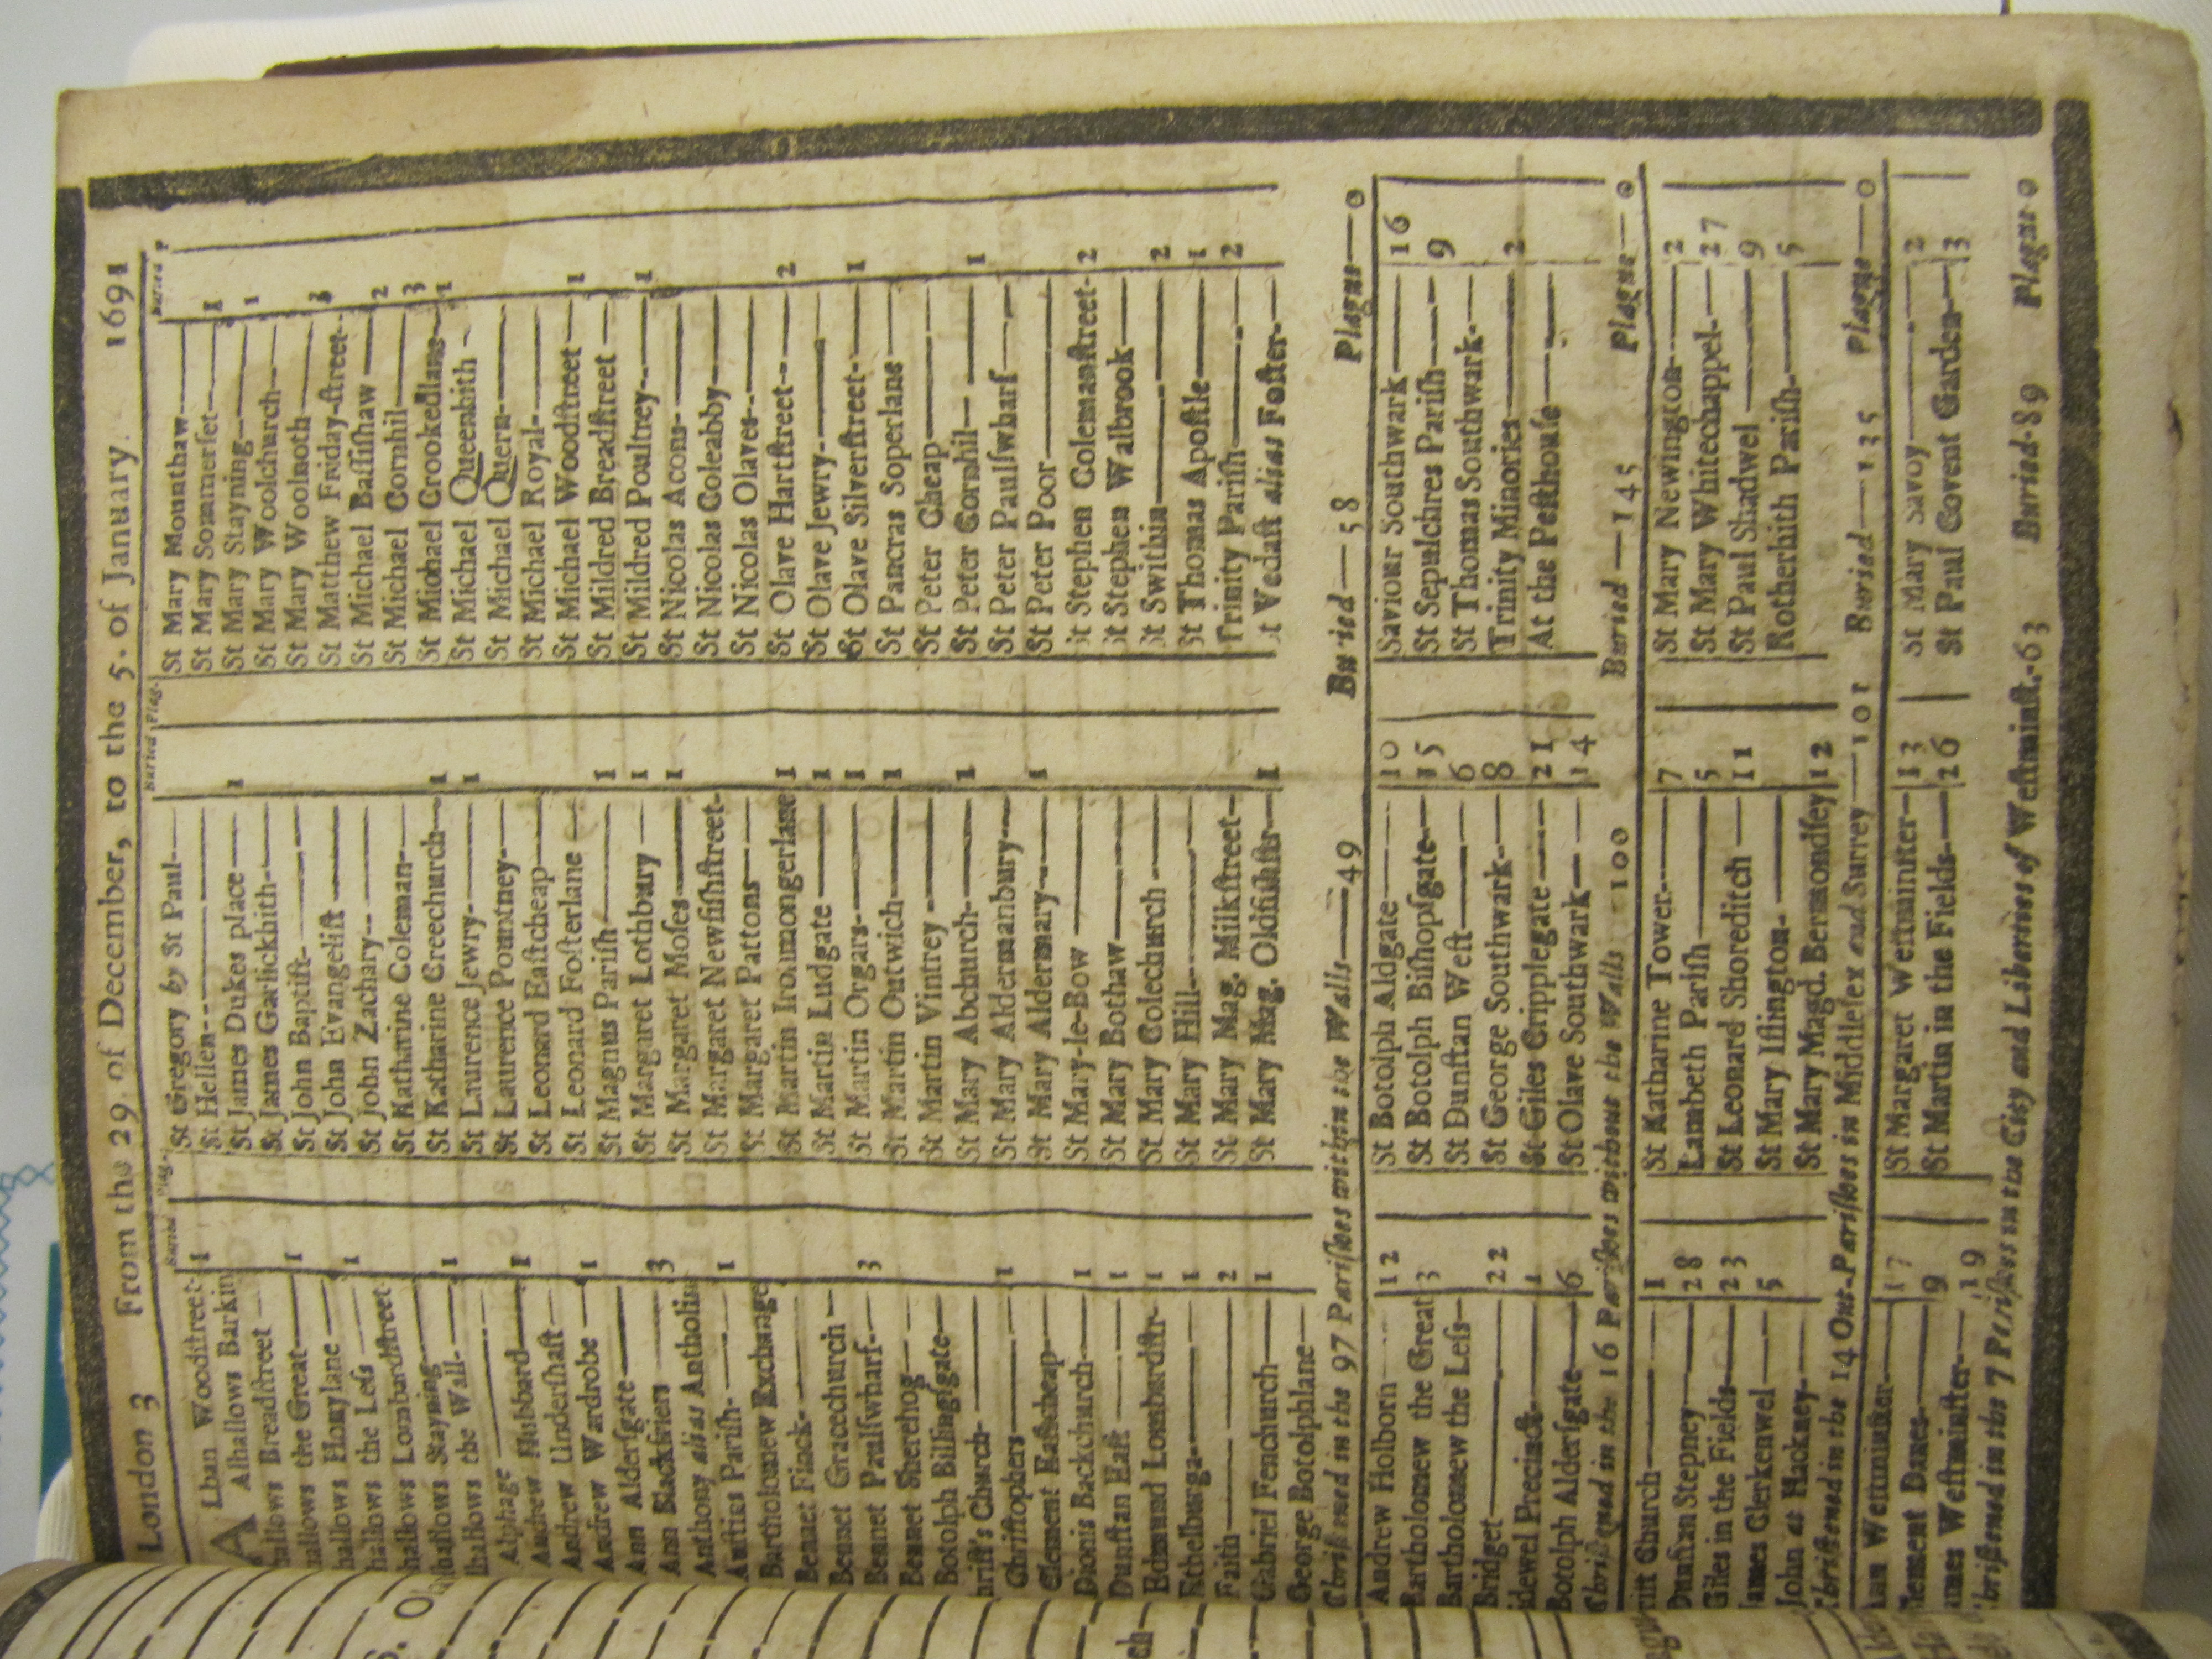 London 3 From the 29. of December, to the 5. of January. 1691
Buried Plag.
ALban Woodſtreet- 1
Alhallows Barkin
hallows Breadſtreet
hallows the Great 1
hallows Honylane
hallows the Leſs 1
hallows Lombardſtreet
hallows Stayning
lhallows the Wall- 1
Alphage
Andrew Hubbard 1
Andrew Underſhaft
Andrew Wardrobe 1
Ann Alderſgate
Ann Blackfriers 3
Anthony alias Antholin
Auſtins Pariſh- 1
Bartholomew Exchange
Bennet Finck-
Bennet Gracechurch
Bennet Paulſwharf- 3
Bennet Sherehog
Botolph Billingſgate
hriſt's Church-
Chriſtophers 1
Clement Eaſtcheap
Dionis Backchurch 1
Dunſtan Eaſt 1
Edmund Lombardſtr- 1
Ethelburga- 1
Faith 2
Gabriel Fenchurch 1
George Botolphlane
Buried Plag.
St Gregory by St Paul-
St Hellen-
St James Dukes place 1
St James Garlickhith-
St John Baptiſt-
St John Evangeliſt
St John Zachary-
St Katharine Coleman-
St Katharine Creechurch 1
St Laurence Jewry- 1
St Laurence Pountney-
St Leonard Eaſtcheap
St Leonard Foſterlane
St Magnus Pariſh 1
St Margaret Lothbury 1
St Margaret Moſes 1
St Margaret Newfiſhſtreet-
St Margaret Pattons
St Martin Ironmongerlane 1
St Martin Ludgate 1
St Martin Orgars- 1
St Martin Outwich 1
St Martin Vintrey
St Mary Abchurch- 1
St Mary Aldermanbury
St Mary Aldermary- 1
St Mary-le-Bow
St Mary Bothaw
St Mary Colechurch
St Mary Hill-
St Mary Mag. Milkſtreet
St Mary Mag. Oldfiſhſtr 1
Buried P
St Mary Mounthaw
St Mary Sommerſet 1
St Mary Stayning- 1
St Mary Woolchurch
St Mary Woolnoth 1
St Matthew Friday-ſtreet
St Michael Baſſiſhaw 2
St Michael Cornhil 3
St Michael Crookedlane 1
St Michael Queenhith
St Michael Quern-
St Michael Royal-
St Michael Woodſtreet 1
St Mildred Breadſtreet
St Mildred Poultrey- 1
St Nicolas Acons-
St Nicolas Coleabby
St Nicolas Olaves-
St Olave Hartſtreet- 2
St Olave Jewry-
St Olave Silverſtreet- 1
St Pancras Soperlane
St Peter Cheap
St Peter Cornhil- 1
St Peter Paulſwharf
St Peter Poor
St Stephen Colemanſtreet- 2
St Stephen Walbrook
St Swithin 2
St Thomas Apoſtle 1
Trinity Pariſh 2
St Vedaſt alias Foſter-
Chriſtned in the 97 Pariſhes within the Walls—49 Buried—58 Plague—0
Andrew Holborn 12
Bartholomew the Great 3
Bartholomew the Leſs
Bridget 22
idewel Precinct 1
Botolph Alderſgate 6
St Botolph Aldgate 10
St Botolph Biſhopſgate 15
St Dunſtan Weſt 6
St George Southwark 8
St Giles Cripplegate 21
St Olave Southwark 14
Saviour Southwark 16
St Sepulchres Pariſh 9
St Thomas Southwark
Trinity Minories 2
At the Peſthouſe
Chriſtned in the 16 Pariſhes without the Walls 100 Buried—145 Plague—0
riſt Church 1
Dunſtan Stepney 28
Giles in the Fields 23
James Clerkenwel 5
John at Hackney
St Katharine Tower 7
Lambeth Pariſh 5
St Leonard Shoreditch 11
St Mary Iſlington-
St Mary Magd. Bermondſey 12
St Mary Newington 2
St Mary Whitechappel 27
St Paul Shadwel 9
Rotherhith Pariſh 5
Chriſtned in the 14 Out-Pariſhes in Middleſex and Surrey—101 Buried—135 Plague—0
ann Weſtminſter 17
lement Danes 9
ames Weſtminſter 19
St Margaret Weſtminſter 13
St Martin in the Fields 26
St Mary Savoy 2
St Paul Covent Garden 3
hriſtned in the 7 Pariſhes in the City and Liberties of Weſtminſt.-63 Buried-89 Plague 0